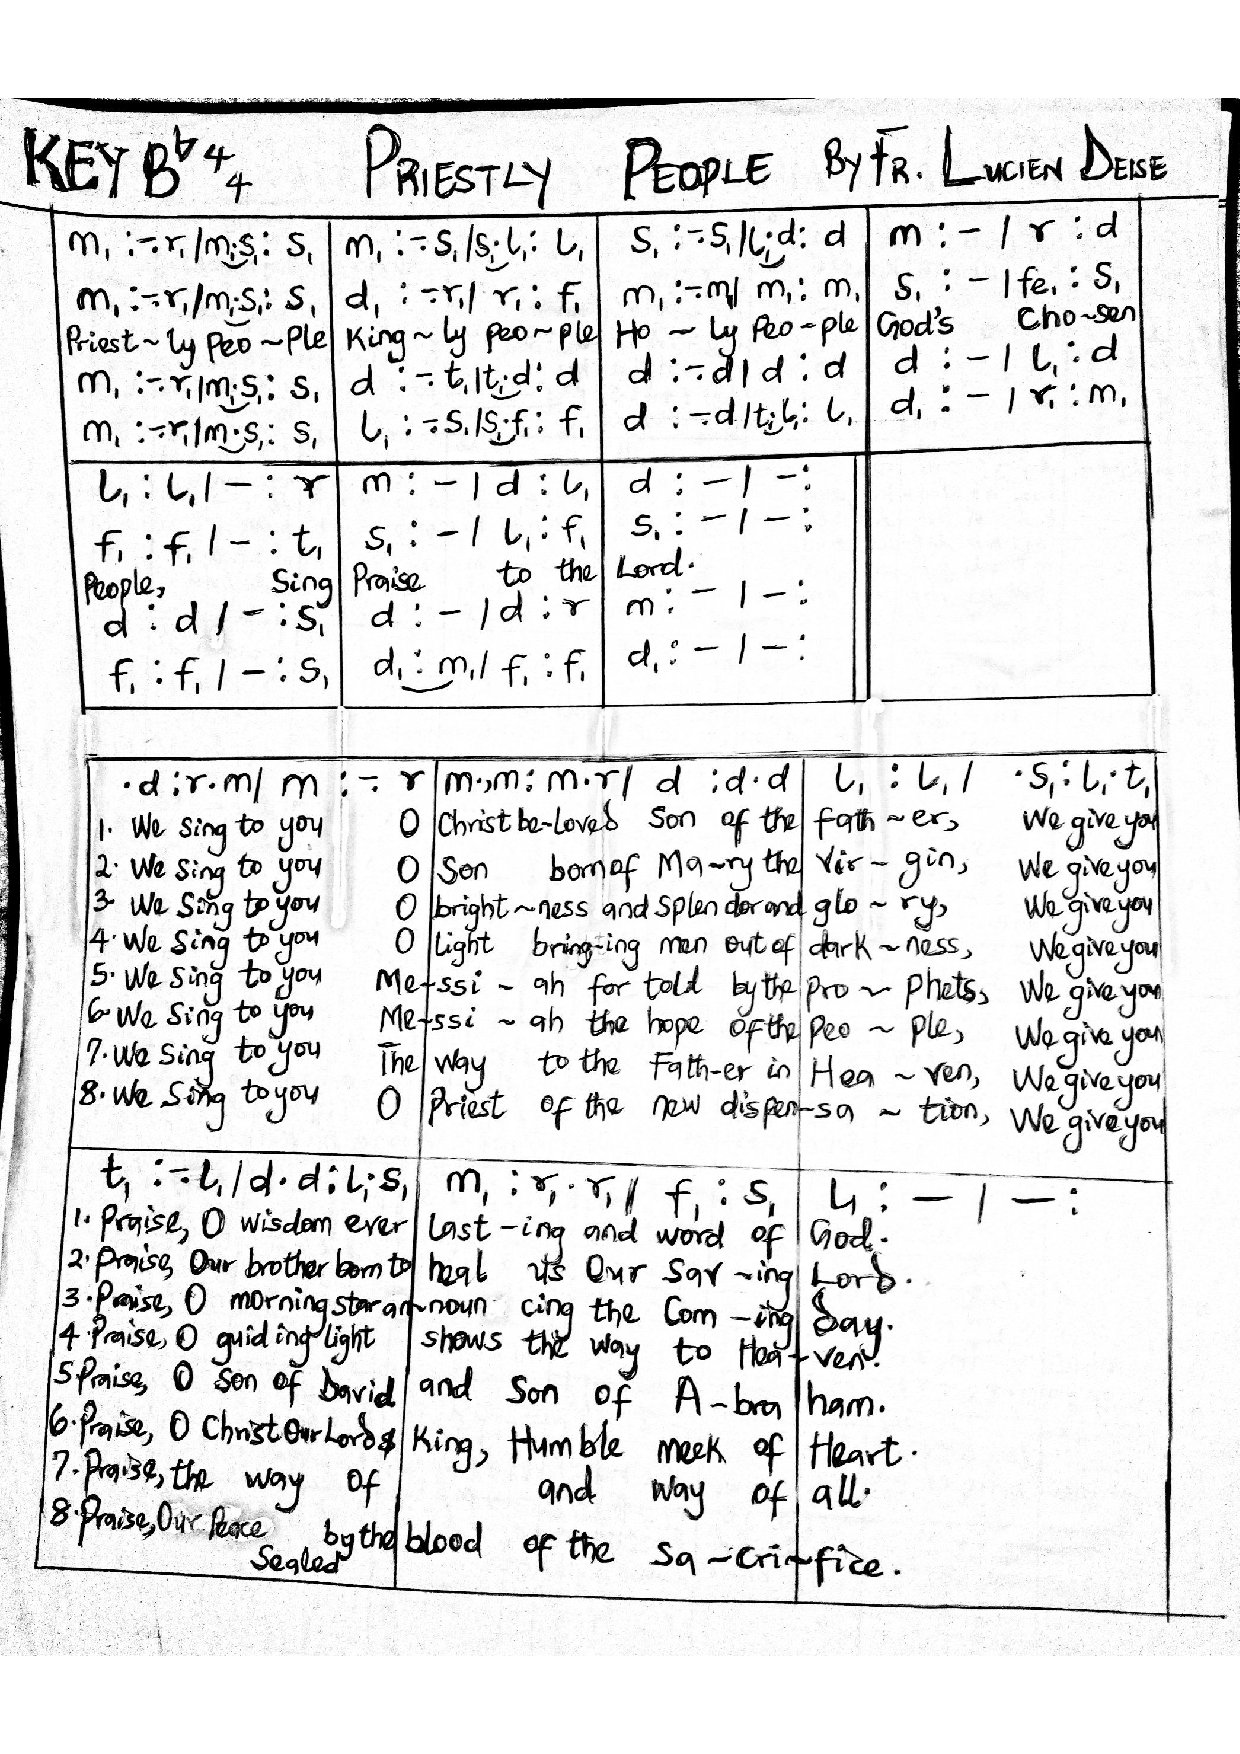 KEY B♭ 4/4 PRIESTLY PEOPLE By Fr. LUCIEN DEISE
m₁ :-.r₁/m₁.s₁: s₁ | m₁ :-.s₁/s₁.l₁: l₁ | s₁ :-.s₁/l₁.d: d | m : - / r : d
m₁ :-.r₁/m₁.s₁: s₁ | d₁ :-.r₁/ r₁ : f₁ | m₁ :-.m₁/ m₁ : m₁ | s₁ : - / fe₁ : s₁
Priest~ly peo~ple | King~ly peo~ple | Ho ~ ly Peo~ple | God's Cho~sen
m₁ :-.r₁/m₁.s₁: s₁ | d :-.t₁/t₁.d: d | d :-.d/ d : d | d : - / l₁ : d
m₁ :-.r₁/m₁.s₁: s₁ | l₁ :-.s₁/s₁.f₁: f₁ | d :-.d/t₁.l₁: l₁ | d₁ : - / r₁ : m₁
l₁ : l₁ / - : r | m : - / d : l₁ | d : - / - :
f₁ : f₁ / - : t₁ | s₁ : - / l₁ : f₁ | s₁ : - / - :
People, Sing | Praise to the | Lord.
d : d / - : s₁ | d : - / d : r | m : - / - :
f₁ : f₁ / - : s₁ | d₁ : m₁ / f₁ : f₁ | d₁ : - / - :
.d :r.m/ m :-. r | m.,m: m.r/ d :d.d | l₁ : l₁ / .s₁: l₁.t₁
1. We sing to you O | Christ be-loved Son of the | fath~er, We give you
2. We sing to you O | Son born of Ma~ry the | vir~gin, We give you
3. We sing to you O | bright~ness and splendor and | glo~ry, We give you
4. We sing to you O | light bring-ing men out of | dark~ness, We give you
5. We sing to you Me-ssi~ah for told by the | pro~phets, We give you
6. We sing to you Me-ssi~ah the hope of the | peo~ple, We give you
7. We sing to you The | way to the Fath-er in | Hea~ven, We give you
8. We sing to you O | Priest of the new dispen-sa~tion, We give you
t₁ :-.l₁/d.d:l₁.s₁ | m₁ : r₁.r₁/ f₁ : s₁ | l₁ : - / - :
1. Praise, O wisdom ever | last-ing and word of | God.
2. Praise, Our brother born to | heal us Our sav~ing | Lord.
3. Praise, O morning star an~noun cing the Com-ing | day.
4. Praise, O guiding light | shows the way to Hea-ven.
5 Praise, O Son of David | and Son of A-bra | ham.
6. Praise, O Christ Our Lord & | King, Humble meek of | Heart.
7. Praise, the way of | and way of | all.
8. Praise, Our Peace Sealed by the | blood of the Sa~cri~fice.